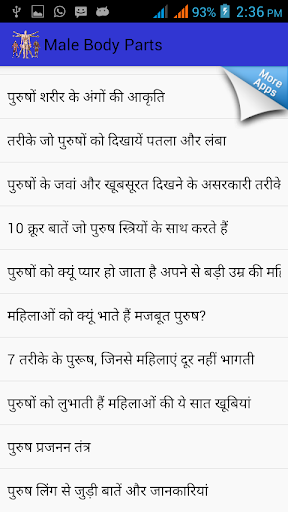 93% 2:36 PM
Male Body Parts
More Apps
पुरुषों शरीर के अंगों की आकृति
तरीके जो पुरुषों को दिखायें पतला और लंबा
पुरुषों के जवां और खूबसूरत दिखने के असरकारी तरीके
10 क्रूर बातें जो पुरुष स्त्रियों के साथ करते हैं
पुरुषों को क्यूं प्यार हो जाता है अपने से बड़ी उम्र की
महिलाओं को क्यूं भाते हैं मजबूत पुरुष?
7 तरीके के पुरूष, जिनसे महिलाएं दूर नहीं भागती
पुरुषों को लुभाती हैं महिलाओं की ये सात खूबियां
पुरुष प्रजनन तंत्र
पुरुष लिंग से जुड़ी बातें और जानकारियां